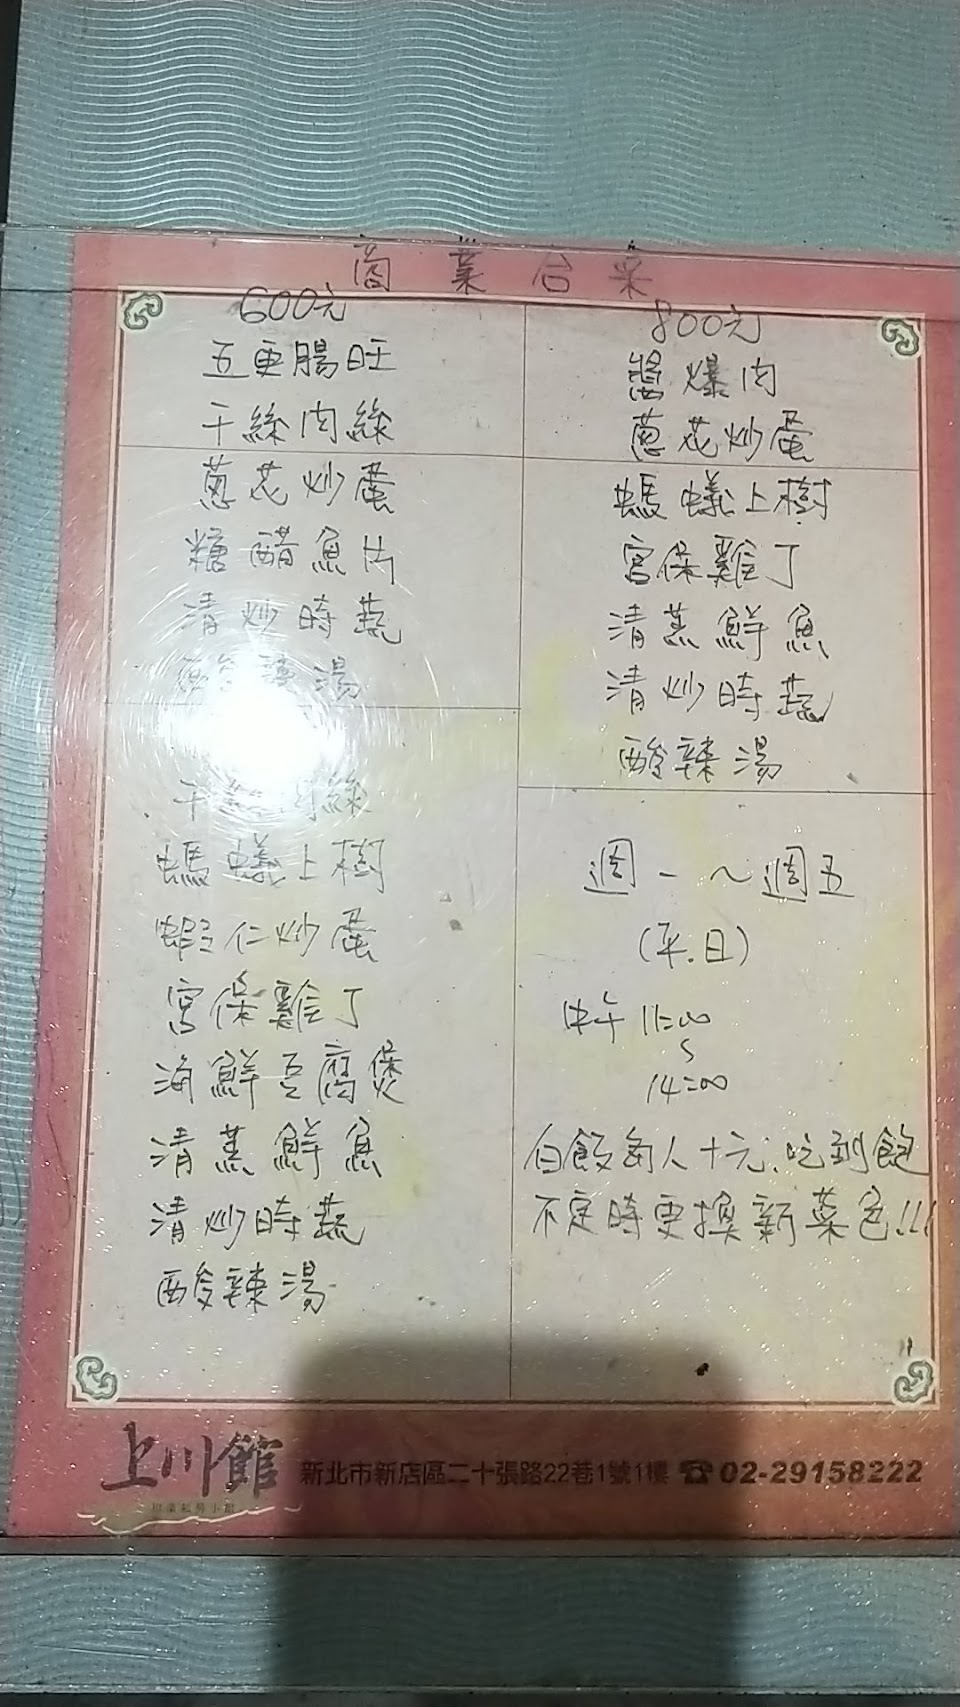 商業合菜
600元
五更腸旺
干絲肉絲
蔥花炒蛋
糖醋魚片
清炒時蔬
酸辣湯
干絲肉絲
螞蟻上樹
蝦仁炒蛋
宮保雞丁
海鮮豆腐煲
清蒸鮮魚
清炒時蔬
酸辣湯
800元
醬爆肉
蔥花炒蛋
螞蟻上樹
宮保雞丁
清蒸鮮魚
清炒時蔬
酸辣湯
週一～週五
(平.日)
中午 11:00
~
14:00
白飯每人十元.吃到飽
不定時更換新菜色!!!
上川館
新北市新店區二十張路22巷1號1樓 ☎02-29158222